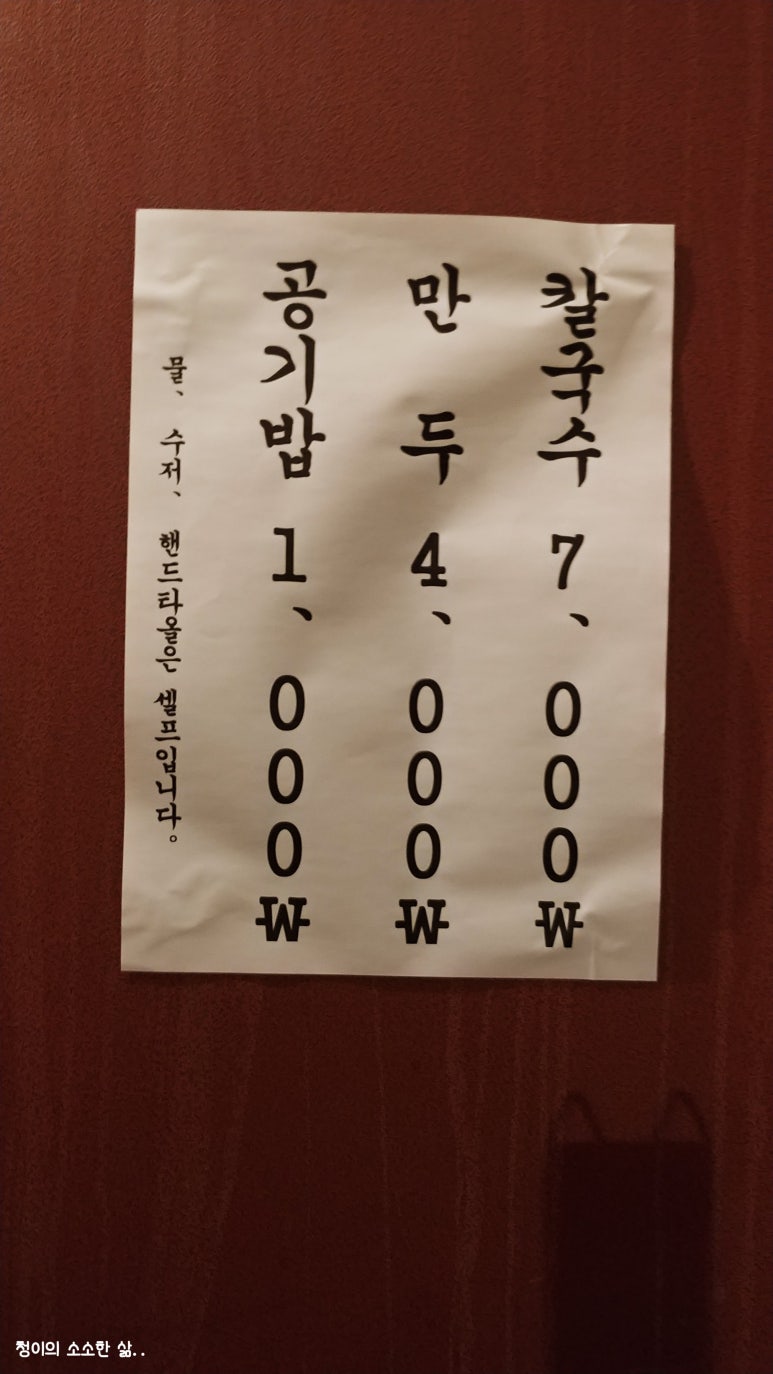 칼국수 7、000₩
만 두 4、000₩
공기밥 1、000₩
물、 수저、 핸드타올은 셀프입니다。
청이의 소소한 삶..